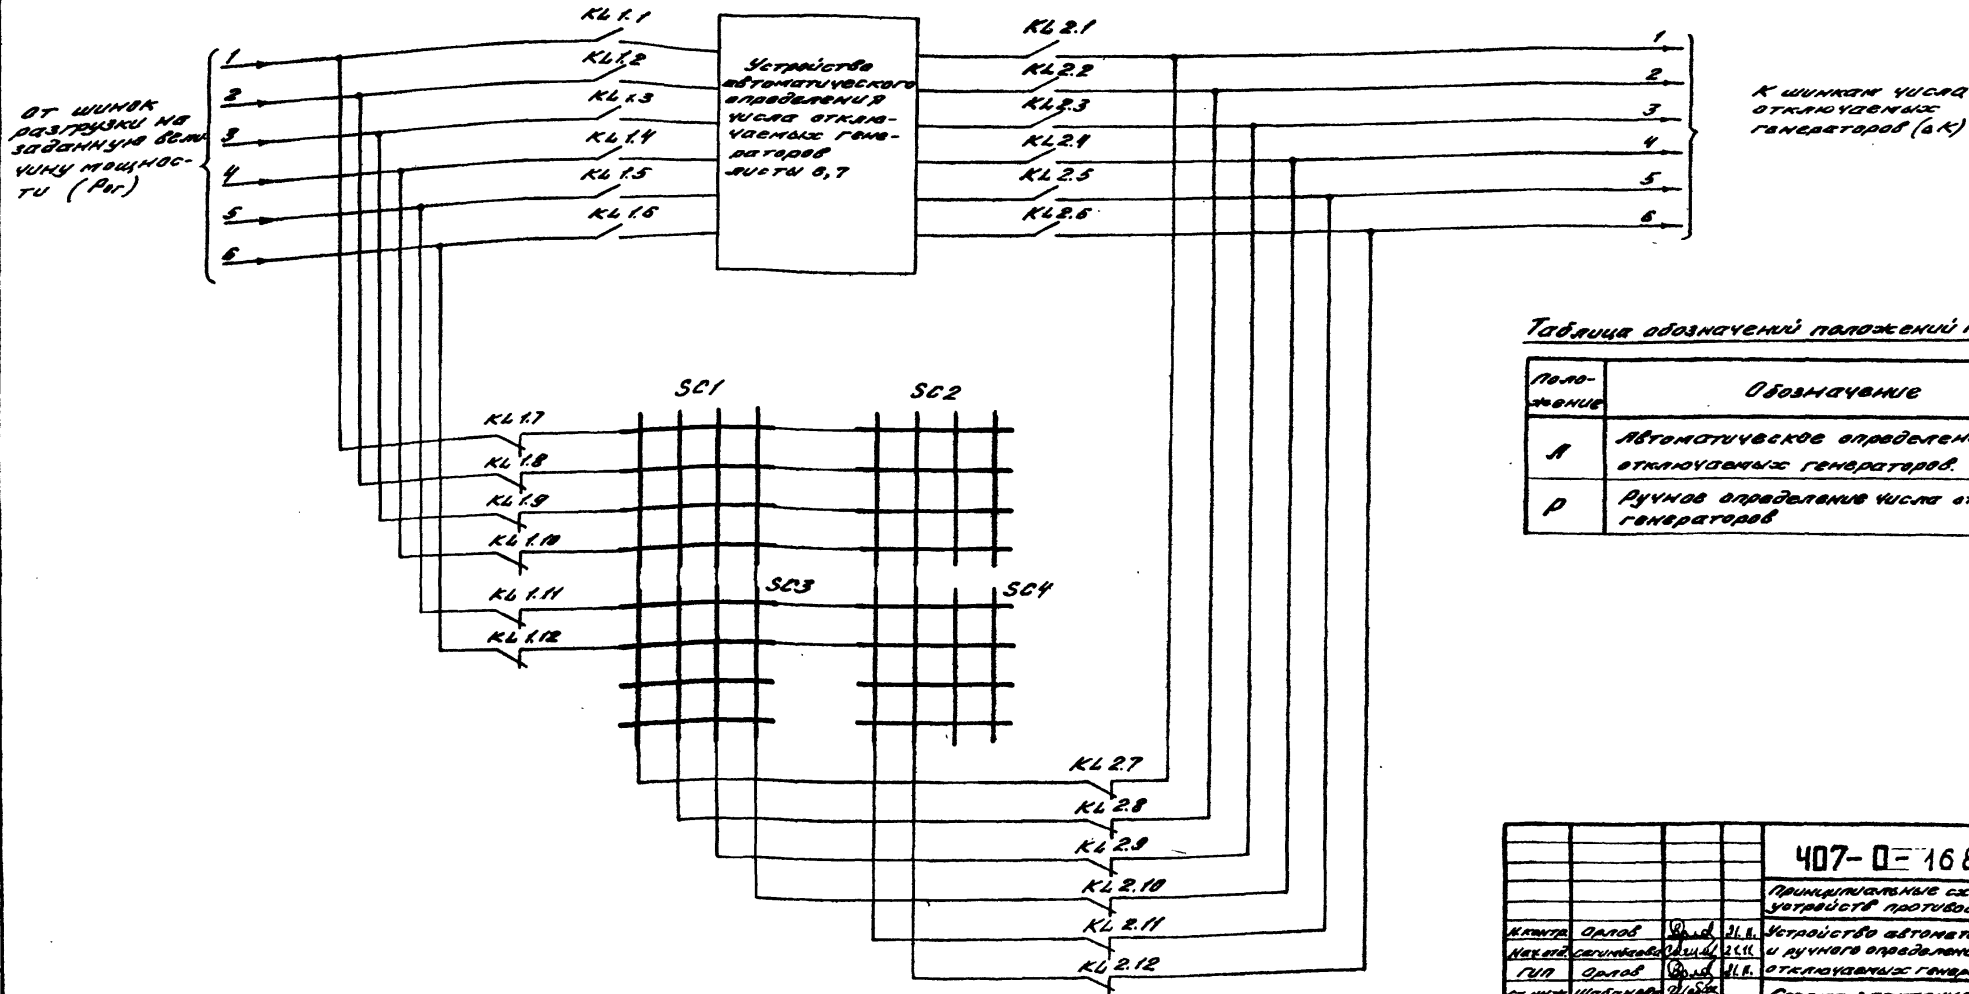 от шинок
разгрузки на
заданную вели-
чину мощнос-
ти (Рог)
1
2
3
4
5
6
KL 1.1
KL 1.2
KL 1.3
KL 1.4
KL 1.5
KL 1.6
Устройство
автоматического
определения
числа отклю-
чаемых гене-
раторов
листы 6,7
KL 2.1
KL 2.2
KL 2.3
KL 2.4
KL 2.5
KL 2.6
1
2
3
4
5
6
К шинкам числа
отключаемых
генераторов (ΔK)
Таблица обозначений положений
Поло-
жение
Обозначение
А
Автоматическое определен
отключаемых генераторов.
Р
Ручное определение числа от
генераторов
SC1
SC2
KL 1.7
KL 1.8
KL 1.9
KL 1.10
KL 1.11
KL 1.12
SC3
SC4
KL 2.7
KL 2.8
KL 2.9
KL 2.10
KL 2.11
KL 2.12
407-0-168
Принципиальные сх
устройств противоа
Н.контр. Орлов 21.11. Устройство автомат
Нач.отд. 21.11 и ручного определен
ГИП Орлов 21.11. отключаемых генера